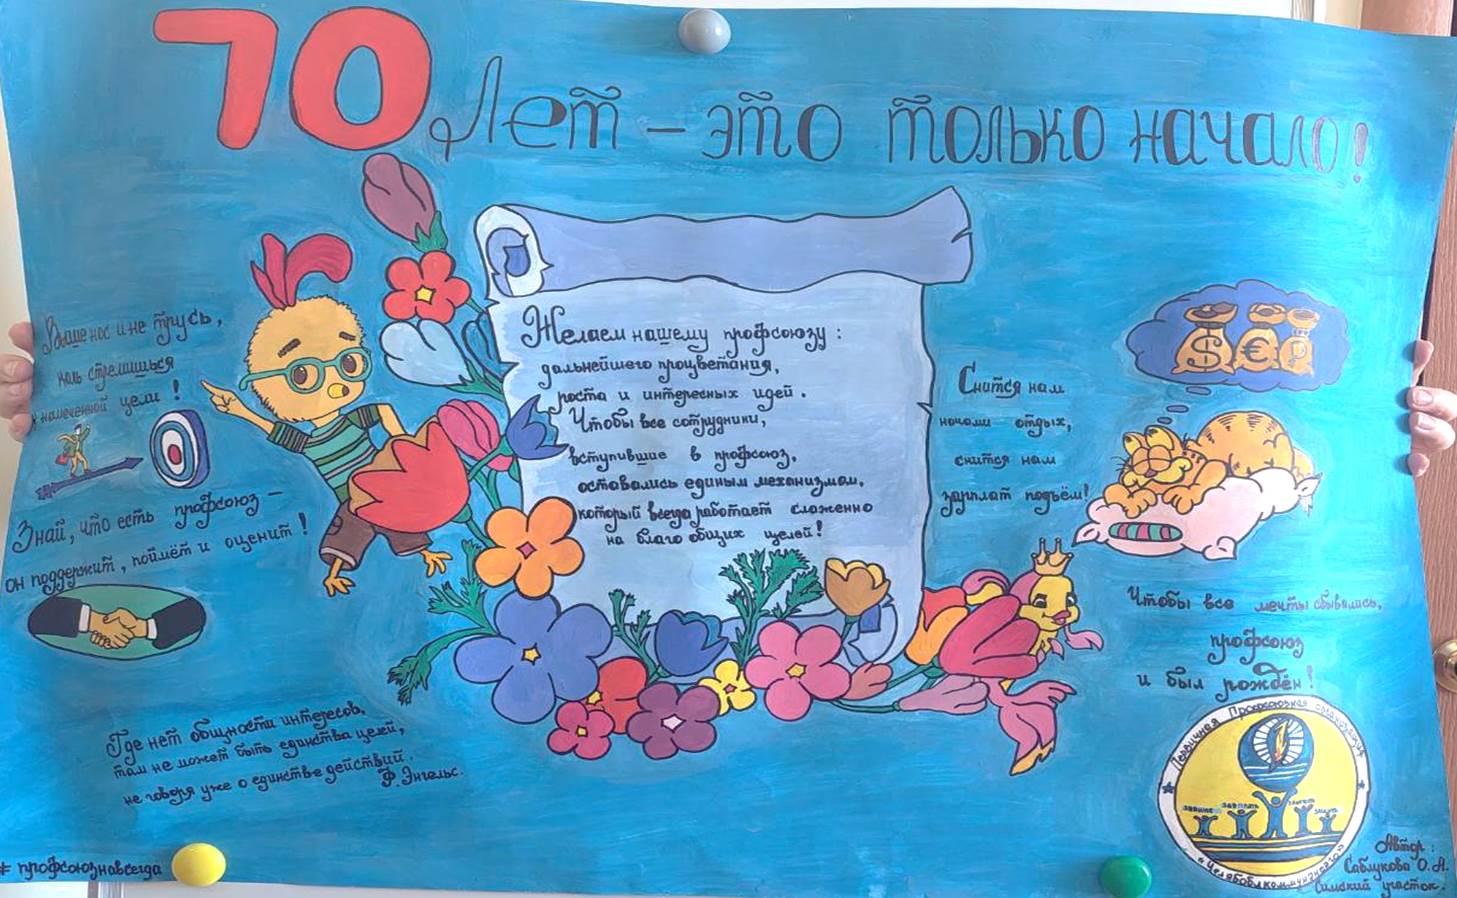 70 Лет - это только начало!
Выше нос и не трусь,
коль стремишься
к намеченной цели!
Знай, что есть профсоюз -
он поддержит, поймёт и оценит!
Где нет общности интересов,
там не может быть единства целей,
не говоря уже о единстве действий.
Ф. Энгельс.
# профсоюзнавсегда
Желаем нашему профсоюзу:
дальнейшего процветания,
роста и интересных идей.
Чтобы все сотрудники,
вступившие в профсоюз,
оставались единым механизмом,
который всегда работает слаженно
на благо общих целей!
Снится нам
ночами отдых,
снится нам
зарплат подъём!
$ € ₽
Чтобы все мечты сбывались,
профсоюз
и был рождён!
Первичная Профсоюзная организация
"Челябоблкоммунэнерго"
Автор:
Саблукова О.А.
Симский участок.